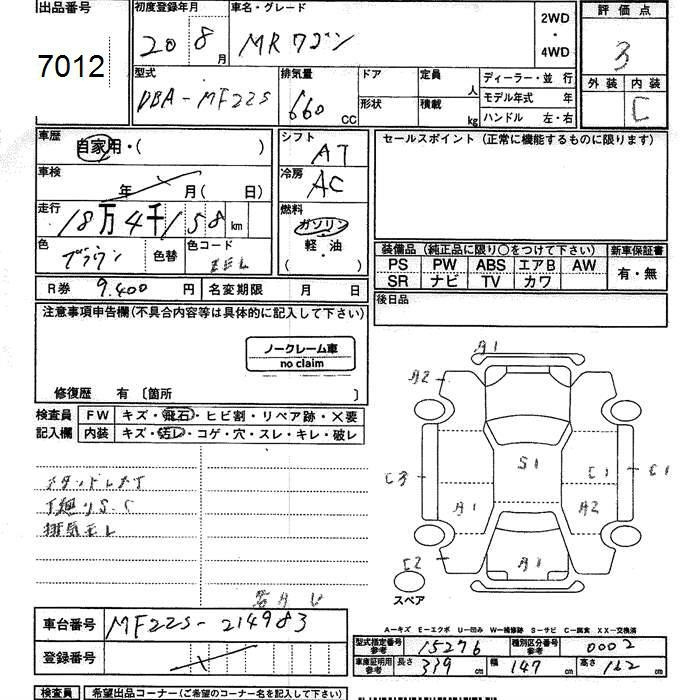 出品番号
7012
初度登録年月
20 8月
車名・グレード
MRワゴン
2WD
・
4WD
評価点
3
外装 内装
C
型式
DBA-MF22S
排気量
660 CC
ドア
形状
定員 人
積載 kg
ディーラー・並 行
モデル年式 年
ハンドル 左・右
車歴
自家用・( )
車検
年 月( 日)
走行
18万4千158km
色
ブラウン
色替
色コード
シフト
AT
冷房
AC
燃料
ガソリン
・
軽・油
( )
セールスポイント (正常に機能するものに限ります)
装備品 (純正品に限り〇をつけて下さい)
PS PW ABS エアB AW
SR ナビ TV カワ
新車保証書
有・無
後日品
R券 9.400 円
名変期限 月 日
注意事項申告欄(不具合内容等は具体的に記入して下さい)
ノークレーム車
no claim
修復歴 有 〔箇所 〕
検査員
記入欄
FW キズ・飛石・ヒビ割・リペア跡・×要
内装 キズ・汚レ・コゲ・穴・スレ・キレ・破レ
下廻りS.C
排気モレ
A1
A2
S1
C3
A1
C1
A2
C1
C2
A1
スペア
A-キズ E-エクボ U-凹み W-補修跡 S-サビ C-腐食 XX-交換済
車台番号 MF22S-214983
登録番号
型式指定番号
参考
15276
種別区分番号
参考
0002
車庫証明用
参考
長さ 339 cm
幅 147 cm
高さ 162 cm
検査員
希望出品コーナー(ご希望のコーナー名を記入して下さい)